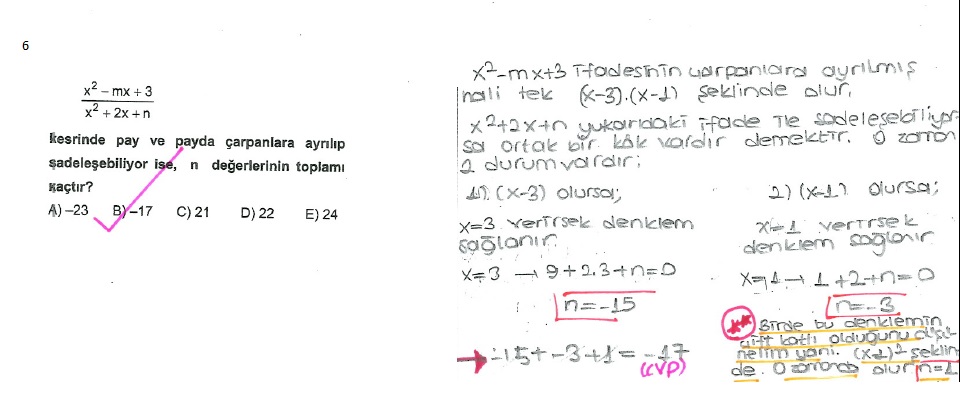 6
x² – mx + 3
x² + 2x + n
kesrinde pay ve payda çarpanlara ayrılıp
şadeleşebiliyor ise, n değerlerinin toplamı
kaçtır?
A) –23 B) –17 C) 21 D) 22 E) 24
x²-mx+3 ifadesinin çarpanlara ayrılmış
hali tek (x-3).(x-1) şeklinde olur.
x²+2x+n yukarıdaki ifade ile sadeleşebiliyor-
sa ortak bir kök vardır demektir. O zaman
2 durum vardır;
1) (x-3) olursa;
x=3 verirsek denklem
sağlanır
x=3 → 9+2.3+n=0
n=-15
2) (x-1) olursa;
x=1 verirsek
denklem sağlanır
x=1 → 1+2+n=0
n=-3
** Birde bu denklemin
çift katlı olduğunu düşü-
nelim yani. (x+1)² şeklin
de. O zamanda olur n=1
→ -15+-3+1=-17
(CVP)